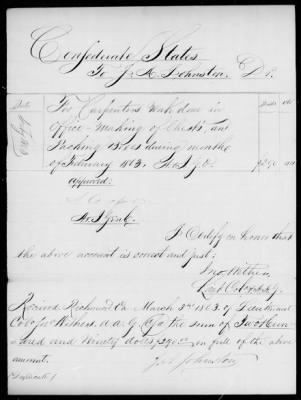 Confederate States
To J. A. Johnston, Dr.
Date
Dolls cts
For Carpenters work done in
office - Making of Chests, and
Packing Boxes during months
of February 1863.
$290
approved.
S. Cooper
I Certify on honor that
the above account is correct and just;
Jno Withers
Received Richmond Va March 3rd 1863, of Lieutenant
Col Jno Withers a. a. G. the sum of Two Hun-
dred and Ninety dolls $290 in full of the above
amount.
J A Johnston
(Duplicate)